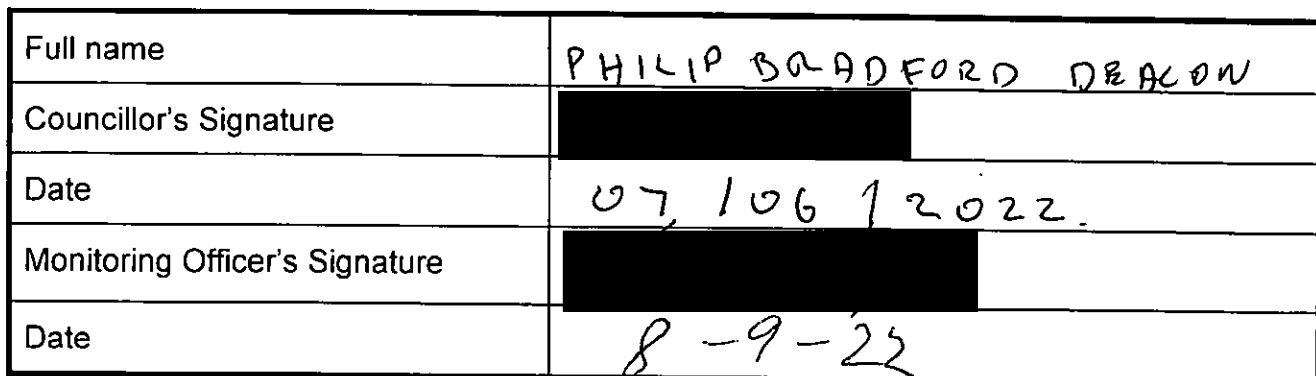 Full name PHILIP BRADFORD DEACON
Councillor's Signature
Date 07/06/2022.
Monitoring Officer's Signature
Date 8-9-22